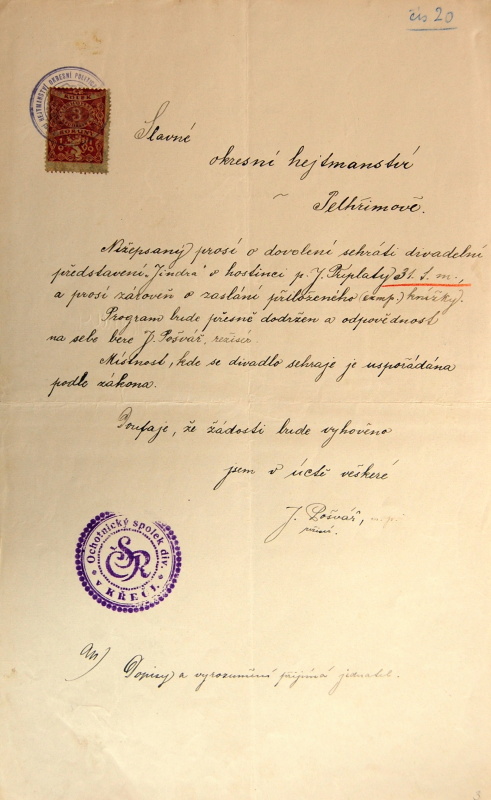 čís 20
Slavné
okresní hejtmanství
v
Pelhřimově.
Nížepsaný prosí o dovolení sehráti divadelní
představení „Jindra" v hostinci p. J. Priplaty 31. t. m.,
a prosí zároveň o zaslání přiloženého (exmp.) knížky.
Program bude přesně dodržen a odpovědnost
na sebe bere J. Pošvář, režisér
Místnost, kde se divadlo sehraje je uspořádána
podle zákona.
Doufaje, že žádosti bude vyhověno
jsem v úctě veškeré
J. Pošvář,
režisér.
Ochotnický spolek div.
v KŘEČI.
Dopisy a vyrozumění přijímá jednatel.
3